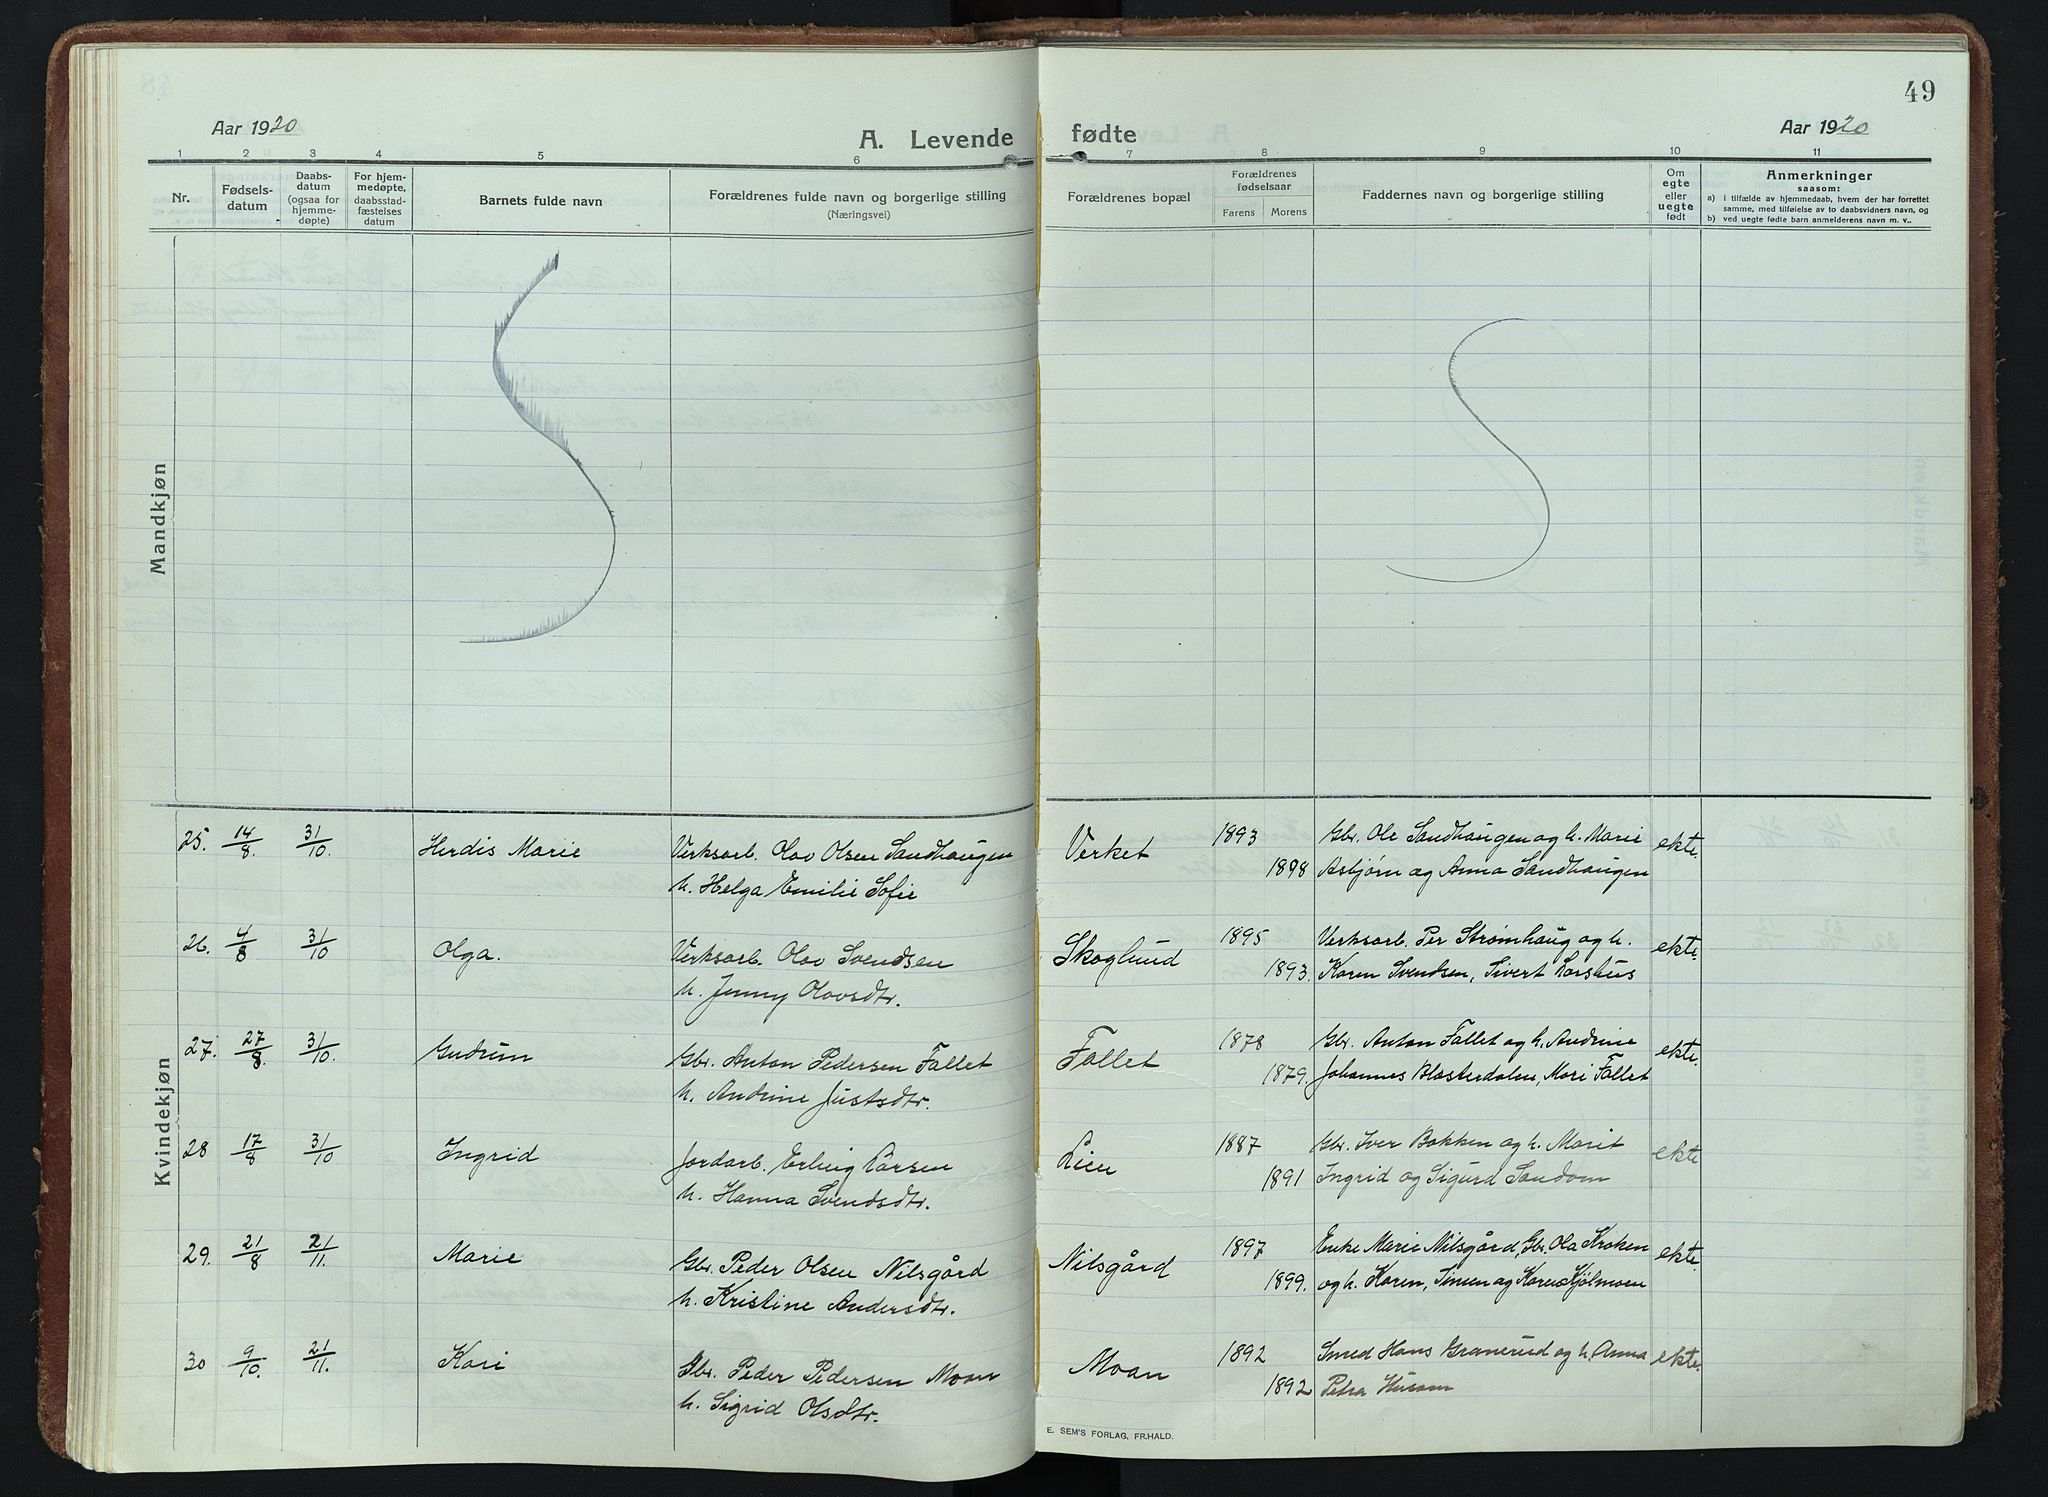 49
Aar 1920
A. Levende fødte
Aar 1920
1 2 3 4 5 6 7 8 9 10 11
Nr.
Fødsels-
datum
Daabs-
datum
(ogsaa for
hjemme-
døpte)
For hjem-
medøpte,
daabsstad-
fæstelses
datum
Barnets fulde navn
Forældrenes fulde navn og borgerlige stilling
(Næringsvei)
Forældrenes bopæl
Forældrenes
fødselsaar
Farens Morens
Faddernes navn og borgerlige stilling
Om
egte
eller
uegte
født
Anmerkninger
saasom:
a) i tilfælde av hjemmedaab, hvem der har forrettet
samme, med tilføielse av to daabsvidners navn, og
b) ved uegte fødte barn anmelderens navn m. v..
Mandkjøn
Kvindekjøn
25. 14/8. 31/10. Herdis Marie Verksarb. Olav Olsen Sandhaugen Verket 1893 Gbr. Ole Sandhaugen og h. Marie ekte.
h. Helga Emilie Sofie 1898 Asbjørn og Anna Sandhaugen
26. 4/8 31/10 Olga. Verksarb. Olav Svendsen Skoglund 1895 Verksarb. Per Strømhaug og h. ekte.
h. Jenny Olavsdtr. 1893. Karen Svendsen, Sivert Lorshus
27. 27/8. 31/10. Gudrun Gbr. Anton Pedersen Fallet Fallet 1878 Gbr. Anton Fallet og h. Andrine ekte.
h. Andrine Justsdtr. 1879. Johannes Blæsterdalen, Mari Fallet
28 17/8 31/10 Ingrid Jordarb. Erling Larsen Lien 1887 Gbr. Iver Bakken og h. Marit ekte
h. Hanna Svendsdtr. 1891 Ingrid og Sigurd Sandom
29. 21/8 21/11. Marie Gbr. Peder Olsen Nilsgård Nilsgård 1897 Enke Marie Nilsgård, Gbr. Ola Kroken ekte.
h. Kristine Andersdtr. 1899. og h. Karen, Simen og Karen Kjølmoen
30 9/10. 21/11. Kari Gbr. Peder Pedersen Moan Moan 1892 Smed Hans Granerud og h. Anna ekte.
h. Sigrid Olsdtr. 1892 Petra Husom
E. SEM'S FORLAG, FR.HALD.